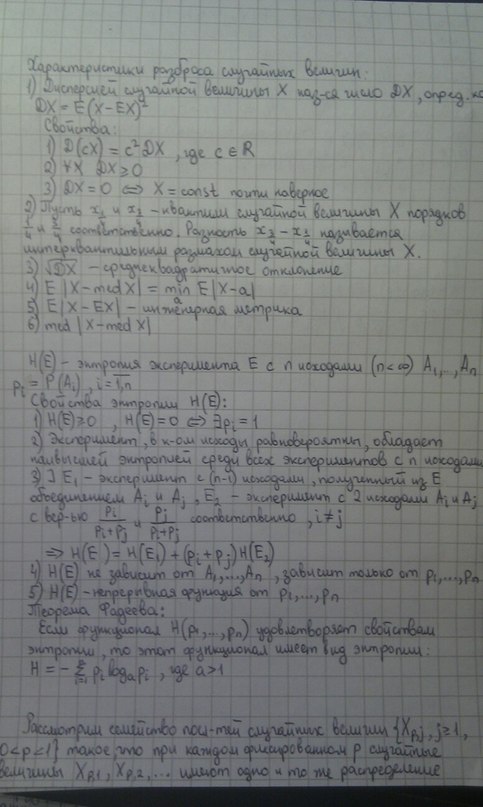 Характеристики разброса случайных величин:
1) Дисперсией случайной величины X наз-ся число DX, опред.
DX = E(X-EX)²
Свойства:
1) D(cX) = c²DX, где c ∈ R
2) ∀X DX ≥ 0
3) DX = 0 ⇔ X = const почти наверное
2) Пусть x_{1/4} и x_{3/4} - квантили случайной величины X порядков
1/4 и 3/4 соответственно. Разность x_{3/4} - x_{1/4} называется
интерквантильным размахом случайной величины X.
3) √DX - среднеквадратичное отклонение
4) E|X-medX| = min_a E|X-a|
5) E|X-EX| - инженерная метрика
6) med|X-medX|
H(E) - энтропия эксперимента E с n исходами (n<∞) A₁,...,Aₙ
pᵢ = P(Aᵢ), i=1,n
Свойства энтропии H(E):
1) H(E)≥0, H(E)=0 ⇔ ∃pᵢ=1
2) Эксперимент, в к-ом исходы равновероятны, обладает
наивысшей энтропией среди всех экспериментов с n исходами
3) ] E₁ - эксперимент с (n-1) исходами, полученный из E
объединением Aᵢ и Aⱼ, E₂ - эксперимент с 2 исходами Aᵢ и Aⱼ
с вер-ью pᵢ/(pᵢ+pⱼ) и pⱼ/(pᵢ+pⱼ) соответственно, i≠j
⇒ H(E) = H(E₁) + (pᵢ+pⱼ)H(E₂)
4) H(E) не зависит от A₁,...,Aₙ, зависит только от p₁,...,pₙ
5) H(E) - непрерывная функция от p₁,...,pₙ
Теорема Фадеева:
Если функционал H(p₁,...,pₙ) удовлетворяет свойствам
энтропии, то этот функционал имеет вид энтропии:
H = - Σ_{i=1}^{n} pᵢ logₐ pᵢ, где a>1
Рассмотрим семейство посл-тей случайных величин {X_{p,j}, j≥1,
0<p<1} такое, что при каждом фиксированном p случайные
величины X_{p,1}, X_{p,2},... имеют одно и то же распределение